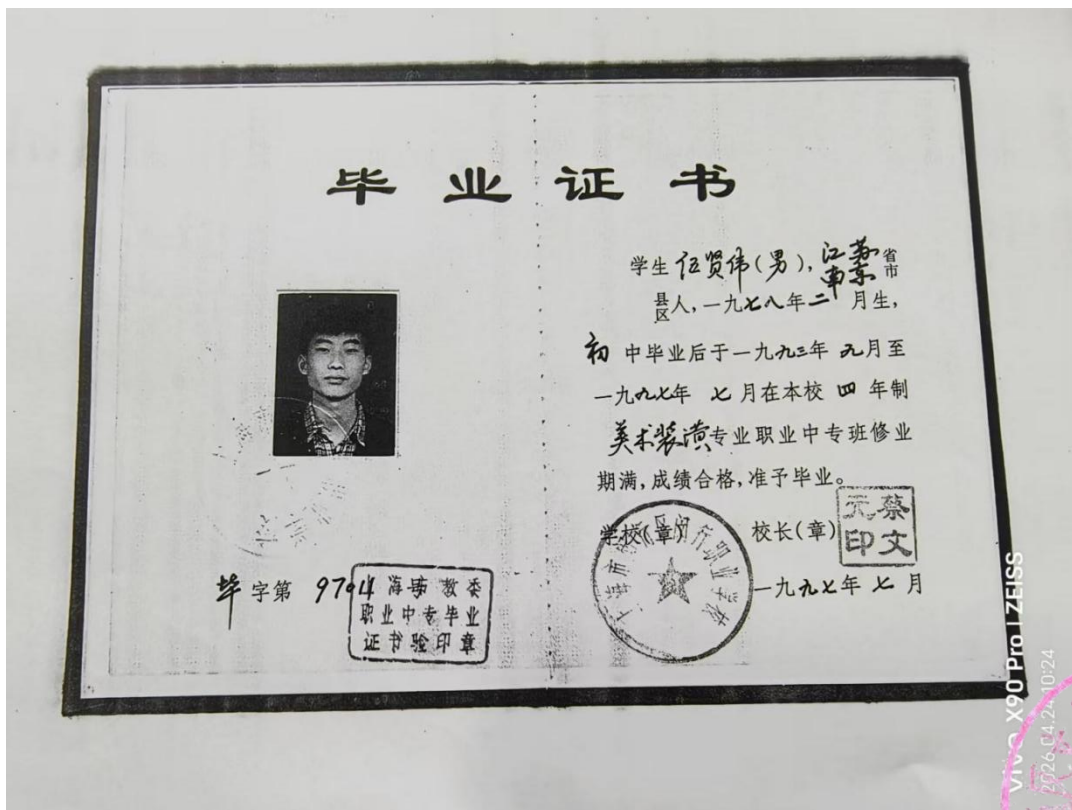 毕业证书
学生 伍贤伟(男), 江苏 省
南京 市
县
区 人,一九七八年 二 月生,
初 中毕业后于一九九三年 九月至
一九九七年 七 月在本校 四 年制
美术装潢 专业职业中专班修业
期满,成绩合格,准予毕业。
学校(章) 校长(章)
蔡文元印
一九九七年 七 月
毕 字第 9704
海市教委
职业中专毕业
证书验印章
vivo X90 Pro | ZEISS
2026.04.24 10:24